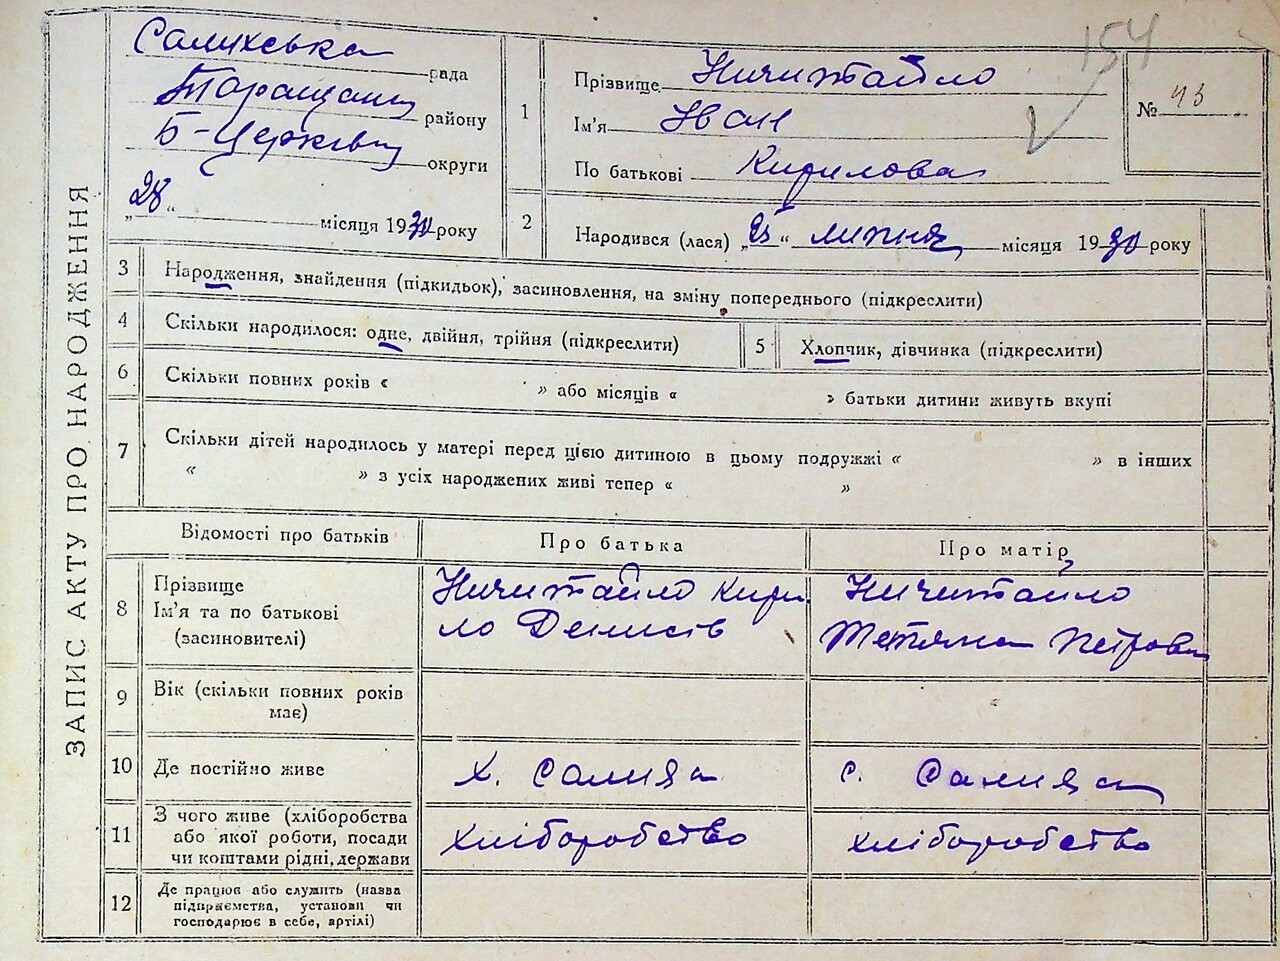 ЗАПИС АКТУ ПРО НАРОДЖЕННЯ
154
Салихська рада
Таращанс району
Б-Церківс округи
„28“ місяця 1930 року
1
Прізвище Ничитайло
Ім'я Іван
По батькові Кирилова
№ 43
2
Народився (лася) „25“ липня місяця 1930 року
3
Народження, знайдення (підкидьок), засиновлення, на зміну попереднього (підкреслити)
4
Скільки народилося: одне, двійня, трійня (підкреслити)
5
Хлопчик, дівчинка (підкреслити)
6
Скільки повних років « » або місяців « » батьки дитини живуть вкупі
7
Скільки дітей народилось у матері перед цією дитиною в цьому подружжі « » в інших
« » з усіх народжених живі тепер « »
Відомості про батьків
Про батька
Про матір
8
Прізвище
Ім'я та по батькові
(засиновителі)
Ничитайло Кири
ло Денисів
Ничитайло
Тетяна Петрова
9
Вік (скільки повних років
має)
10
Де постійно живе
х. Салиха
с. Салиха
11
З чого живе (хліборобства
або якої роботи, посади
чи коштами рідні, держави
хліборобство
хліборобство
12
Де працює або служить (назва
підприємства, установи чи
господарює в себе, артілі)